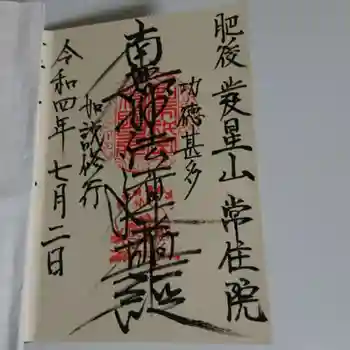 肥後 發星山 常住院
功徳甚多
南無妙法蓮華經
如説修行
令和四年七月二日